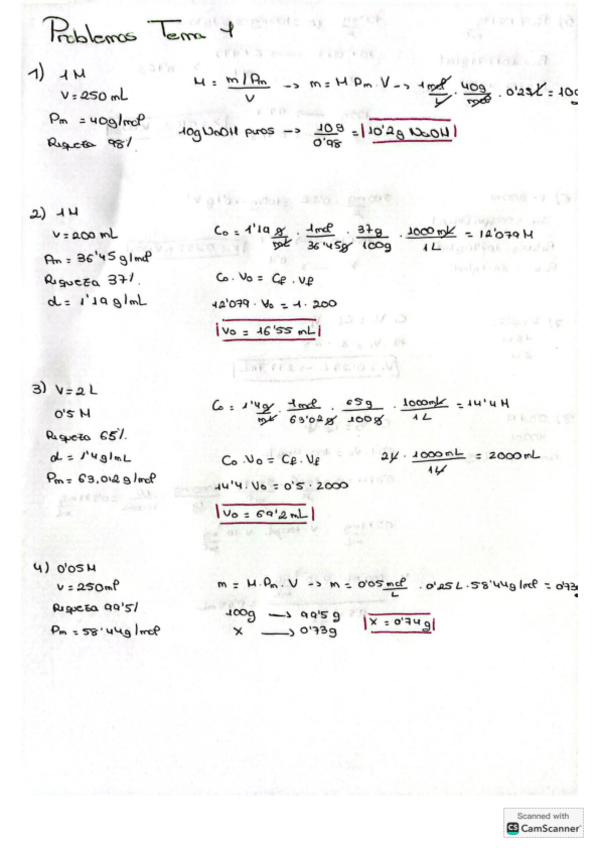 Problemas Tema 1
1) 1M
V = 250 mL
Pm = 40g/mol
Riqueza 98%
M = m/Pm / V → m = M·Pm·V → 1 mol/L · 40g/mol · 0'25L = 10g
10g NaOH puros → 10g/0'98 = 10'2g NaOH
2) 1M
V = 200 mL
Pm = 36'45 g/mol
Riqueza 37%
d = 1'19 g/mL
Co = 1'19 g/mL · 1mol/36'45g · 37g/100g · 1000mL/1L = 12'079 M
Co · Vo = Cf · Vf
12'079 · Vo = 1 · 200
Vo = 16'55 mL
3) V = 2 L
0'5 M
Riqueza 65%
d = 1'4g/mL
Pm = 63,012 g/mol
Co = 1'4g/mL · 1mol/63'02g · 65g/100g · 1000mL/1L = 14'4 M
Co · Vo = Cf · Vf
2L · 1000mL/1L = 2000mL
14'4 · Vo = 0'5 · 2000
Vo = 69'2 mL
4) 0'05M
V = 250ml
Riqueza 99'5%
Pm = 58'44g/mol
m = M·Pm·V → m = 0'05 mol/L · 0'25L · 58'44g/mol = 0'73g
100g → 99'5 g
X → 0'73g
X = 0'74g
Scanned with
CS CamScanner